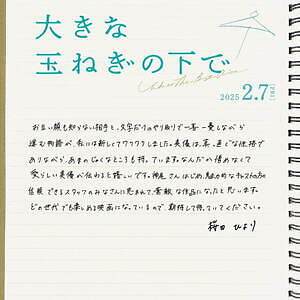 大きな
玉ねぎの下で
Under The Big Onion
2025 2.7 [FRI]
お互い顔も知らない相手と、文字だけのやり取りで一喜一憂しながら
進む物語が、私には新しくてワクワクしました。美優は、真っ直ぐな性格で
ありながら、あまのじゃくなところも持っています。なんだか憎めなくて
愛らしい美優が伝わると嬉しいです。神尾さんはじめ、魅力的なキャストの方々、
信頼できるスタッフのみなさんに恵まれて、素敵な作品になったと思います。
どの世代でも楽しめる映画になっているので、期待して待っていてください。
桜田 ひより